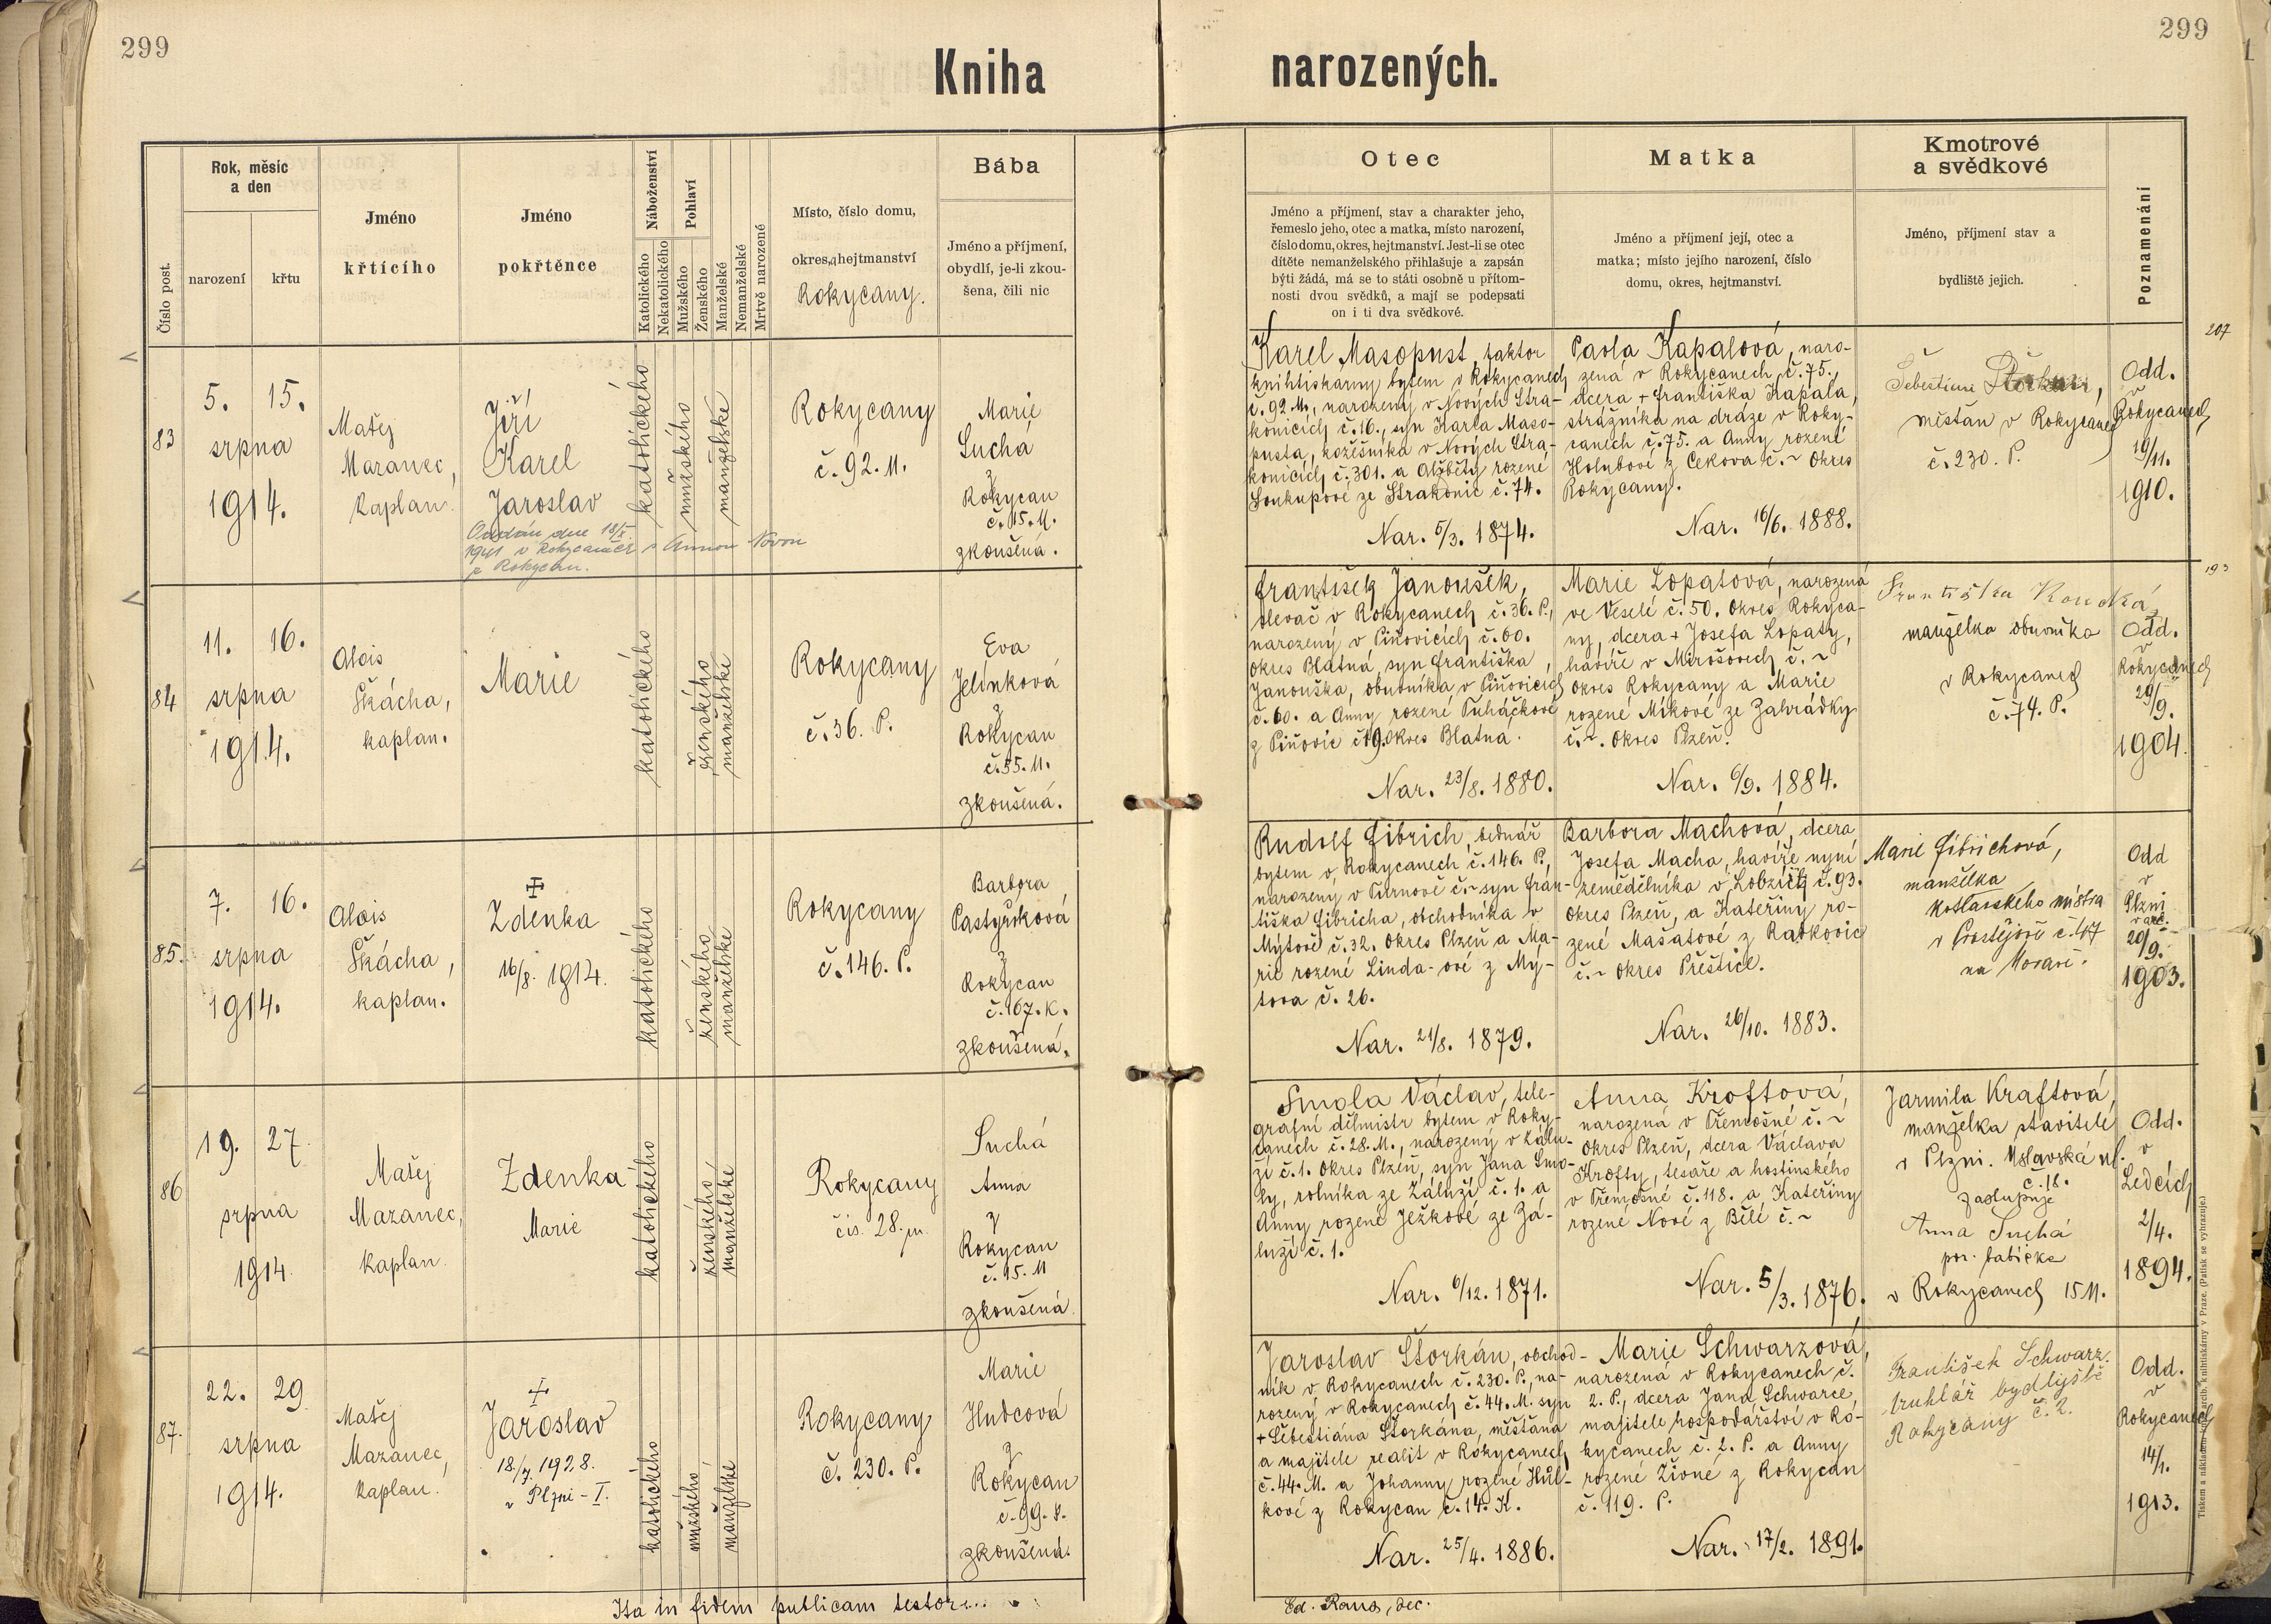 299
299
Kniha narozených.
Číslo post.
Rok, měsíc
a den
narození
křtu
Jméno
křtícího
Jméno
pokřtěnce
Náboženství
Katolického
Nekatolického
Pohlaví
Mužského
Ženského
Manželské
Nemanželské
Mrtvě narozené
Místo, číslo domu,
okres, hejtmanství
Rokycany.
Bába
Jméno a příjmení,
obydlí, je-li zkou-
šena, čili nic
Otec
Jméno a příjmení, stav a charakter jeho,
řemeslo jeho, otec a matka, místo narození,
číslo domu, okres, hejtmanství. Jest-li se otec
dítěte nemanželského přihlašuje a zapsán
býti žádá, má se to státi osobně u přítom-
nosti dvou svědků, a mají se podepsati
on i ti dva svědkové.
Matka
Jméno a příjmení její, otec a
matka; místo jejího narození, číslo
domu, okres, hejtmanství.
Kmotrové
a svědkové
Jméno, příjmení stav a
bydliště jejich.
Poznamenání
83
5. 15.
srpna
1914.
Matěj
Mazanec,
Kaplan.
Jiří
Karel
Jaroslav
Oddán dne 18/X.
1941 v Rokycanech s Annou Novou
z Rokycan.
katolického
mužského
manželské
Rokycany
č. 92. M.
Marie
Suchá
z
Rokycan
č. 15. M.
zkoušená.
Karel Masopust, faktor
knihtiskárny bytem v Rokycanech
č. 92 M., narozený v Nových Stra-
konicích č. 16., syn Karla Maso-
pusta, kožešníka v Nových Stra-
konicích č. 301. a Alžběty rozené
Soukupové ze Strakonic č. 74.
Nar. 5/3. 1874.
Pavla Kapalová, naro-
zená v Rokycanech č. 75.,
dcera + Františka Kapala,
strážníka na dráze v Roky-
canech č. 75. a Anny rozené
Holubové z Cekova č. ~ Okres
Rokycany.
Nar. 16/6. 1888.
Šebestian
měšťan v Rokycanech
č. 230. P.
Odd.
v
Rokycanech
19/11.
1910.
207
84
11. 16.
srpna
1914.
Alois
Škácha,
kaplan.
Marie
katolického
ženského
manželské
Rokycany
č. 36. P.
Eva
Jelínková
z
Rokycan
č. 55. M.
zkoušená.
František Janoušek,
slevač v Rokycanech č. 36. P.,
narozený v Piňovicích č. 60.
okres Blatná, syn Františka
Janouška, obuvníka v Piňovicích
č. 60. a Anny rozené Tuháčkové
z Piňovic č. 19. Okres Blatná.
Nar. 23/8. 1880.
Marie Lopatová, narozená
ve Veselé č. 50. Okres Rokyca-
ny, dcera + Josefa Lopaty,
havíře v Mirošovech č. ~
Okres Rokycany a Marie
rozené Míkové ze Zahrádky
č. ~. Okres Plzeň.
Nar. 6/9. 1884.
Františka
manželka obuvníka
v Rokycanech
č. 74. P.
Odd.
v
Rokycanech
29/9.
1904.
193
85.
7. 16.
srpna
1914.
Alois
Škácha,
kaplan.
Zdenka
16/8. 1914.
katolického
ženského
manželské
Rokycany
č. 146. P.
Barbora
Pastyříková
z
Rokycan
č. 167. K.
zkoušená.
Rudolf Fibrich, bednář
bytem v Rokycanech č. 146. P.,
narozený v Turnově č. ~ syn Fran-
tiška Fibricha, obchodníka v
Mýtově č. 32. Okres Plzeň a Ma-
rie rozené Linda-ové z Mý-
tova č. 26.
Nar. 21/8. 1879.
Barbora Machová, dcera
Josefa Macha, havíře nyní
zemědělníka v Lobzích č. 93.
Okres Plzeň, a Kateřiny ro-
zené Mašatové z Radkovic
č. ~ Okres Přeštice.
Nar. 26/10. 1883.
Marie Fibrichová,
manželka
kotlářského mistra
v Prostějově č. 147
na Moravě.
Odd
v
Plzni
20/9.
1903.
86
19. 27.
srpna
1914.
Matěj
Mazanec,
Kaplan.
Zdenka
Marie
katolického
ženského
manželské
Rokycany
čís. 28. m.
Suchá
Anna
z
Rokycan
č. 15. M
zkoušená.
Smola Václav, tele-
grafní dělmistr bytem v Roky-
canech č. 28. M., narozený v Zálu-
ží č. 1. Okres Plzeň, syn Jana Smo-
ly, rolníka ze Záluží č. 1. a
Anny rozené Ježkové ze Zá-
luží č. 1.
Nar. 6/12. 1871.
Anna Kroftová,
narozená v Třemošné č. ~
Okres Plzeň, dcera Václava
Krofty, tesaře a hostinského
v Třemošné č. 118. a Kateřiny
rozené Nové z Bělé č. ~
Nar. 5/3. 1876.
Jarmila Kraftová,
manželka stavitele
v Plzni. Úslavská ul.
č. 18.
zastupuje
Anna Suchá
por. babička
v Rokycanech 15 M.
Odd.
v
Ledcích
2/4.
1894.
87.
22. 29
srpna
1914.
Matěj
Mazanec,
kaplan.
Jaroslav
18./7. 1928.
v Plzni - I.
katolického
mužského
manželské
Rokycany
č. 230. P.
Marie
Hudcová
z
Rokycan
č. 99. P.
zkoušená.
Jaroslav Štorkán, obchod-
ník v Rokycanech č. 230. P., na-
rozený v Rokycanech č. 44. M. syn
+ Šebestiána Štorkána, měšťana
a majitele realit v Rokycanech
č. 44. M. a Johanny rozené Hůl-
kové z Rokycan č. 14. K.
Nar. 25/4. 1886.
Marie Schwarzová,
narozená v Rokycanech č.
2. P., dcera Jana Schwarce
majitele hospodářství v Ro-
kycanech č. 2. P. a Anny
rozené Živné z Rokycan
č. 119. P.
Nar. 17/2. 1891.
František Schwarz.
truhlář bydliště
Rokycany č. 2.
Odd.
v
Rokycanech
14/1.
1913.
Ita in fidem publicam testor...
Ed. Rauš, dec.